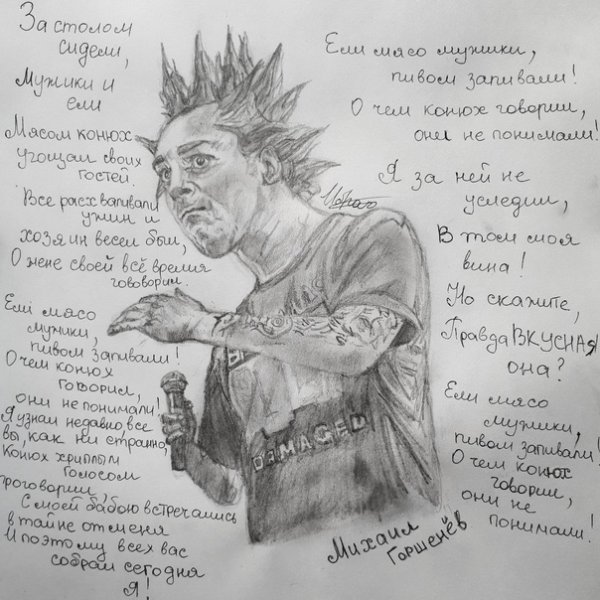 За столом
сидели,
Мужики и
ели
Мясом конюх
угощал своих
гостей.
Все расхваливали
ужин и
хозяин весел был,
О жене своей всё время
гововорил.
Ели мясо
мужики,
пивом запивали!
О чем конюх
говорил,
они не понимали!
Я узнал недавно, все
вы, как ни странно,
Конюх хриплым
голосом
проговорил,
С моей бабою встречались
в тайне от меня
И поэтому всех вас
собрал сегодня
я!
Ели мясо мужики,
пивом запивали!
О чем конюх говорил,
они не понимали!
Я за ней не
уследил,
В том моя
вина!
Но скажите,
Правда ВКУСНАЯ
она?
Ели мясо
мужики,
пивом запивали!
О чем конюх
говорил,
они не
понимали!
DEMAGED
Михаил
Горшенёв